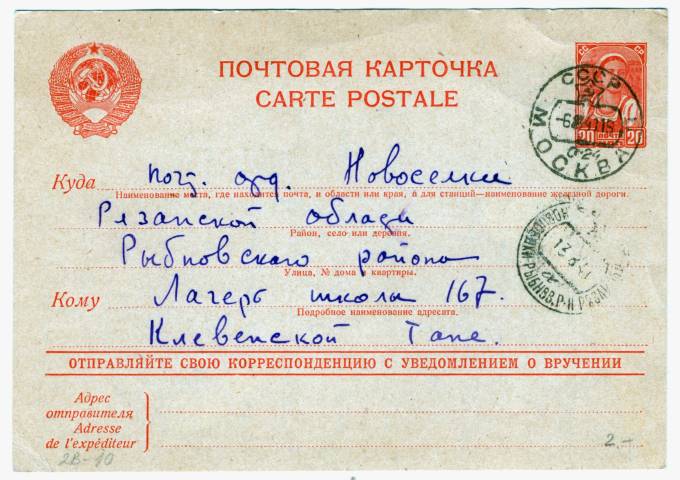 ПОЧТОВАЯ КАРТОЧКА
CARTE POSTALE
СС СР
20 20
СССР
МОСКВА
Куда почт. отд. Новоселки
Наименование места, где находится почта, и области или края, а для станций—наименование железной дороги.
Рязанской области
Район, село или деревня.
Рыбновского района
Улица, № дома и квартиры.
Кому Лагерь школы 167.
Подробное наименование адресата.
Клевенской Тане.
ОТПРАВЛЯЙТЕ СВОЮ КОРРЕСПОНДЕНЦИЮ С УВЕДОМЛЕНИЕМ О ВРУЧЕНИИ
Адрес
отправителя
Adresse
de l'expéditeur
2В-10
2.-